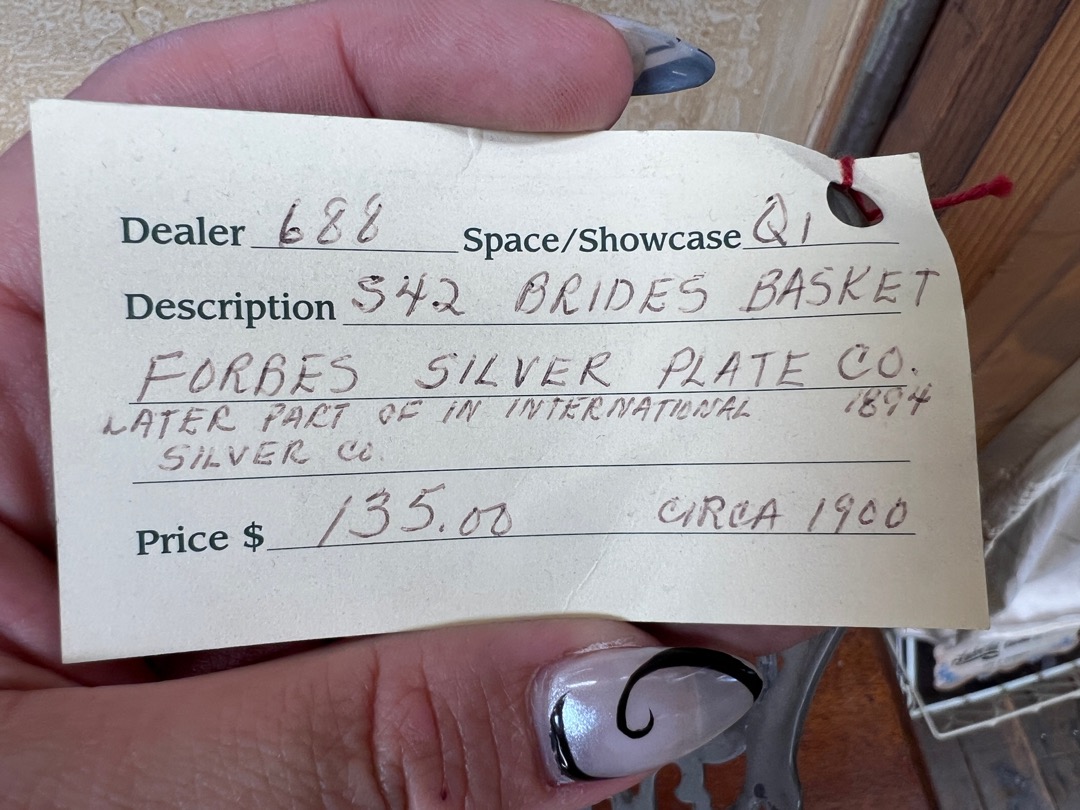 Dealer 688 Space/Showcase Q1
Description S42 BRIDES BASKET
FORBES SILVER PLATE CO.
LATER PART OF IN INTERNATIONAL 1894
SILVER CO.
Price $ 135.00 CIRCA 1900